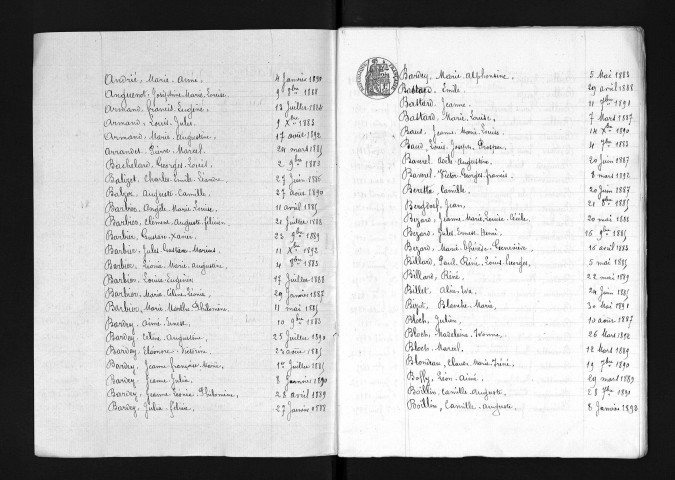 André, Marie Anne. 4 Janvier 1890
Anguenot, Joséphine Marie Louise 9 8bre 1888
Armand, Francis Eugène. 13 Juillet 1884
Armand, Louis Jules. 9 Xbre 1883
Armand, Marie Augustine. 17 août 1892
Arrandet, Pierre Marcel. 24 mars 1885
Bachelard, Georges Louis. 2 9bre 1883
Balizet, Charles Emile Léandre. 27 Juin 1886
Balzer, Auguste Camille. 27 août 1890
Barbier, Angèle Marie Louise. 11 avril 1885
Barbier, Clément Auguste félicien. 21 Juillet 1888
Barbier, Gustave Xavier. 23 9bre 1889
Barbier, Jules Gustave Marius. 11 Xbre 1892
Barbier, Léonie Marie Augustine. 4 9bre 1883
Barbier, Louise Eugénie. 17 Juillet 1888
Barbier, Maria Céline Léonie. 29 Janvier 1887
Barbier, Marie Marthe Philomène. 11 mai 1885
Bardey, Aimé Ernest. 10 9bre 1883
Bardey, Céline Augustine. 25 Juillet 1890
Bardey, Eléonore 22 août 1885
Bardey, Jeanne Françoise Marie. 17 Juillet 1885
Bardey, Jeanne Julia. 8 Janvier 1890
Bardey, Jeanne Léonie Philomène. 28 avril 1889
Bardey, Julie félicie. 27 Janvier 1888
Bardey, Marie Alphonsine. 5 Mai 1883
Bastard, Emile. 29 avril 1888
Bastard, Jeanne. 11 9bre 1891
Bastard, Marie Louise. 7 Mars 1887
Baud, Jeanne Marie Louise. 14 Xbre 1890
Baud, Louis Joseph Prosper. 4 7bre 1883
20 Juin 1887
Victor Georges francis. 8 mars 1892
Beretta, Camille. 20 Juin 1887
Jean. 21 8bre 1885
Bezard, Jeanne Marie Louise Cécile. 20 mai 1888
Bezard, Jules Ernest Henri. 16 9bre 1885
Bezard, Marie Thérèse Geneviève. 16 avril 1883
Billard, Paul Réné Louis Georges. 5 mai 1885
Billard, Réné. 22 mai 1889
Billet, Alice Eva. 24 Juin 1885
Bizot, Blanche Marie. 30 Mai 1891
Bloch, Julien. 10 août 1887
Bloch, Madeleine Yvonne. 26 Mars 1892
Bloch, Marcel. 12 Mars 1889
Blondeau, Claude Marie Iréné. 19 7bre 1890
Boffy, Léon Aimé. 29 mars 1889
Boillin, Camille Auguste. 28 7bre 1890
Boillin, Camille Auguste. 8 Janvier 1892